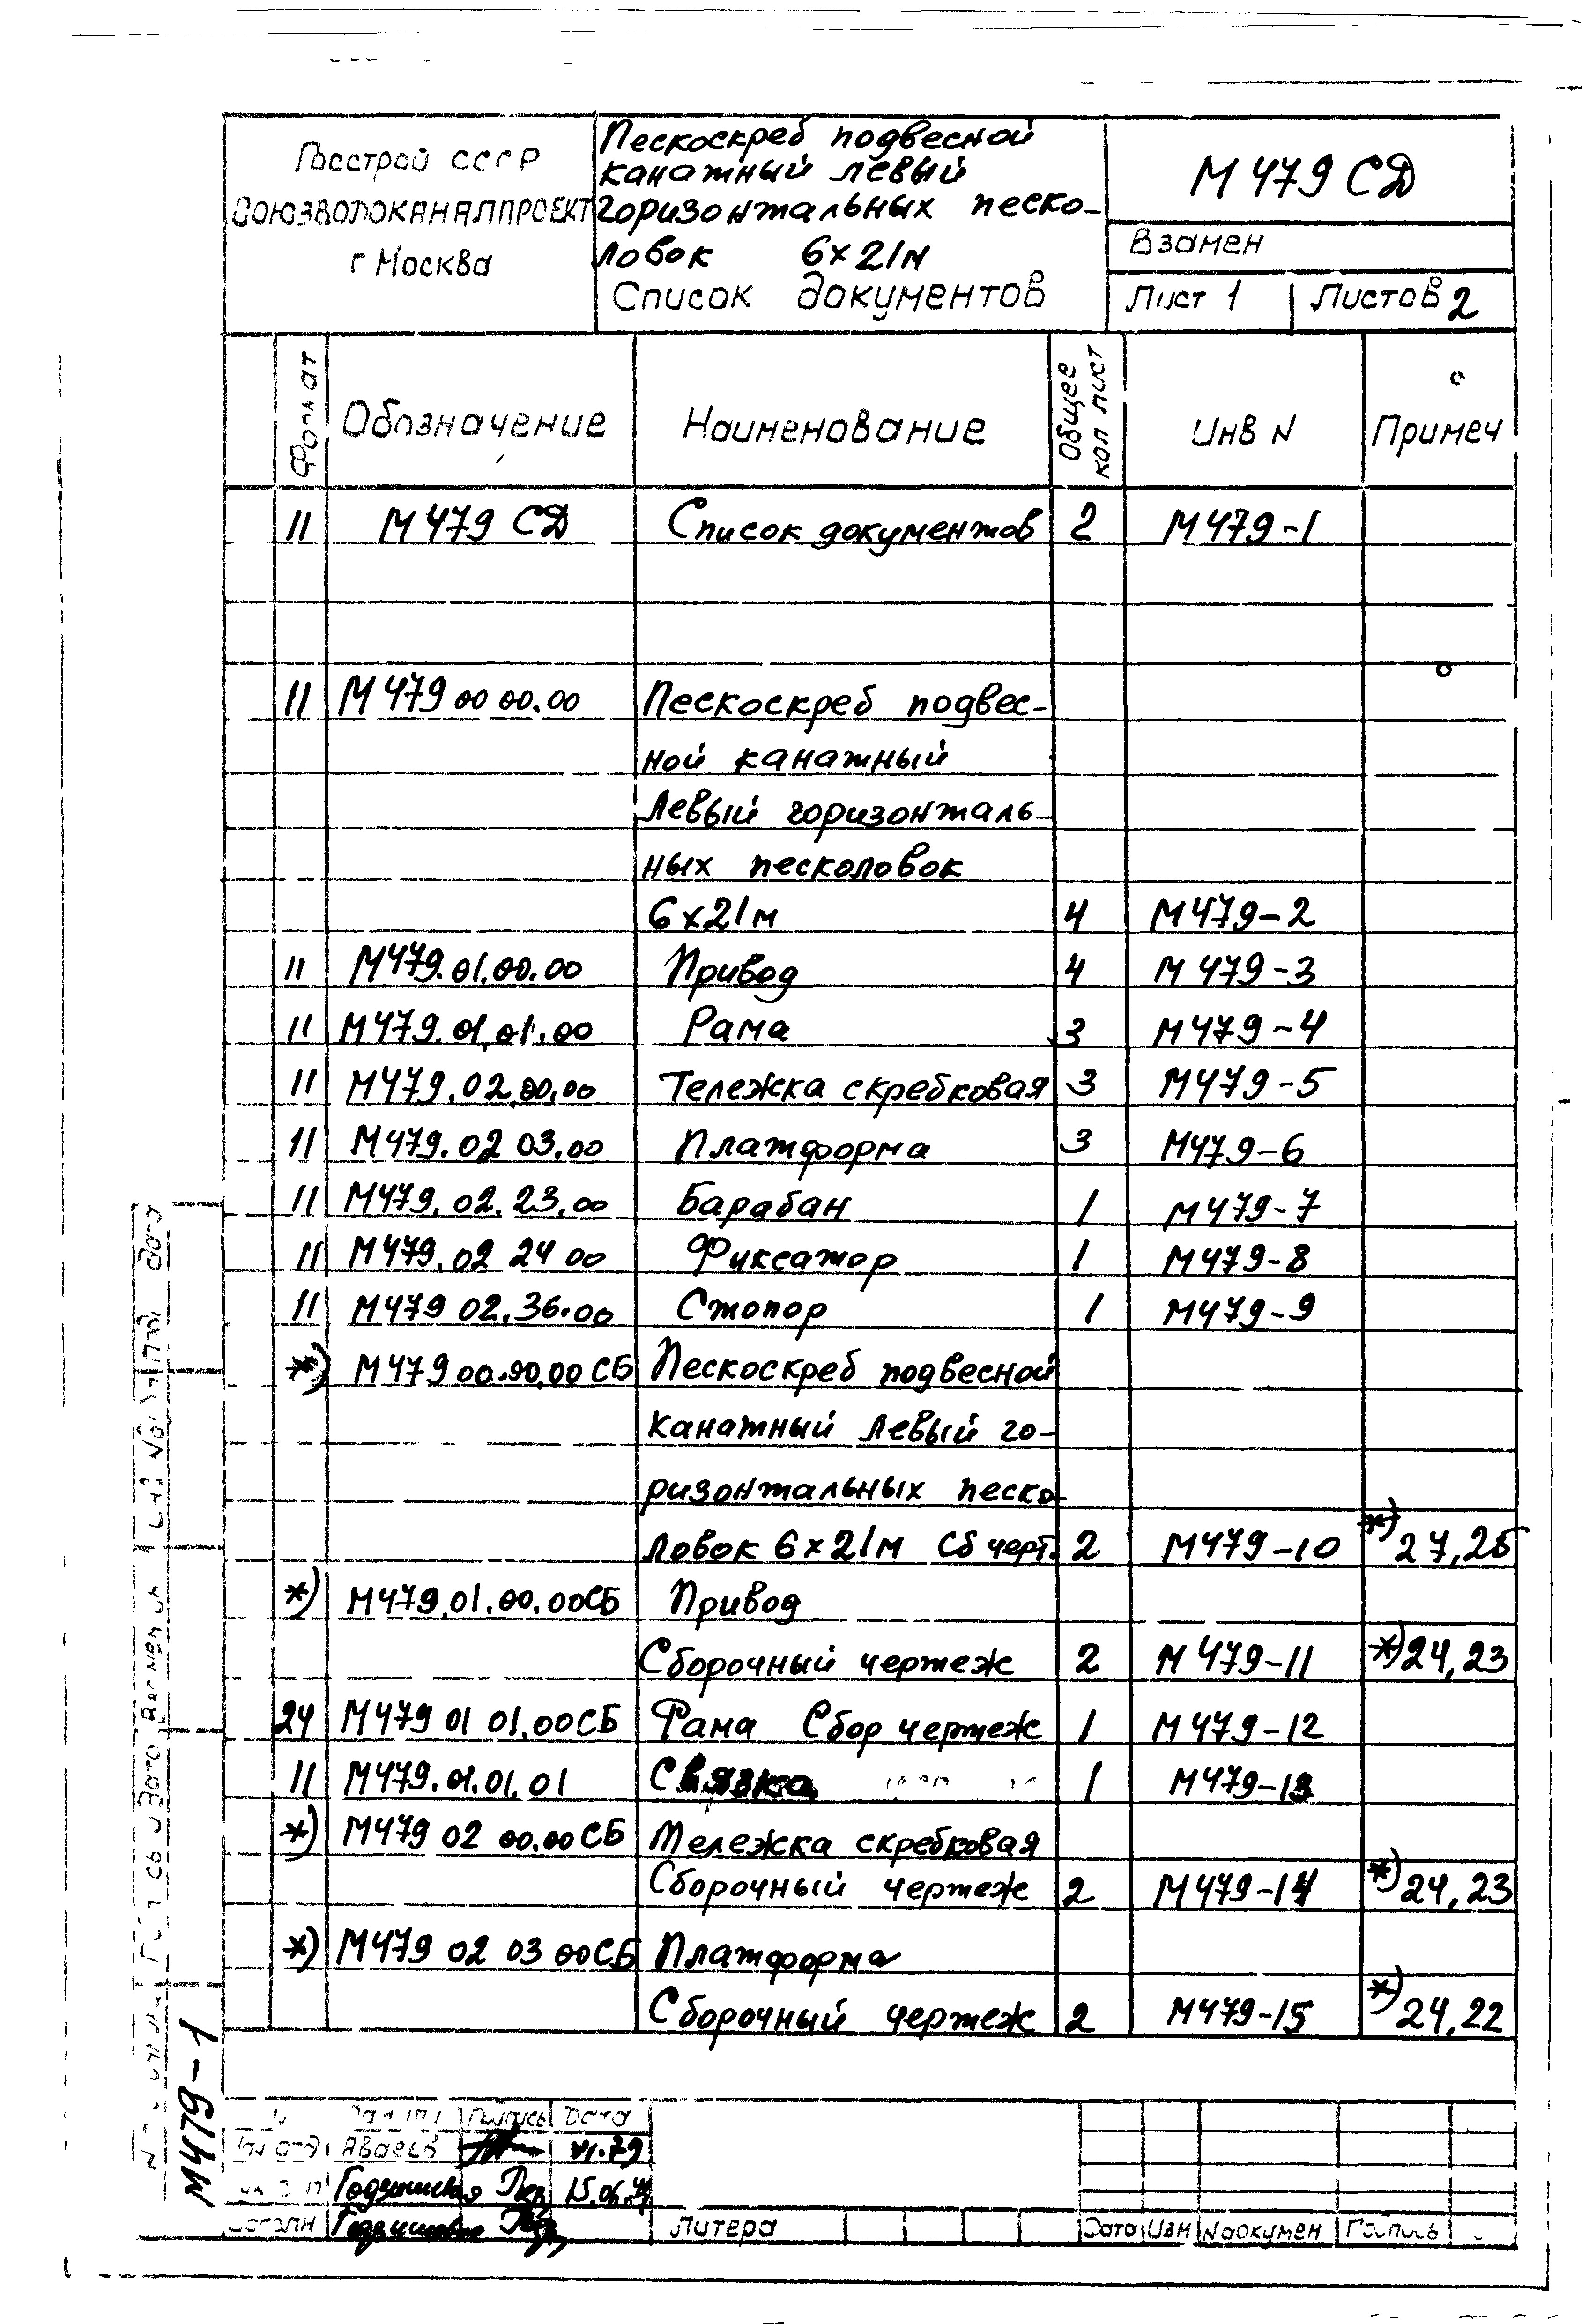 Госстрой СССР
СОЮЗВОДОКАНАЛПРОЕКТ
г Москва
Пескоскреб подвесной
канатный левый
горизонтальных песко-
ловок 6х21м
Список документов
М 479 СД
Взамен
Лист 1 Листов 2
Формат Обозначение Наименование Общее кол лист Инв N Примеч
11 М 479 СД Список документов 2 М 479-1
11 М 479 00 00.00 Пескоскреб подвес-
ной канатный
левый горизонталь-
ных песколовок
6х21м 4 М 479-2
11 М479.01.00.00 Привод 4 М 479-3
11 М479.01.01.00 Рама 3 М 479-4
11 М479.02.00.00 Тележка скребковая 3 М479-5
11 М479.02 03.00 Платформа 3 М479-6
11 М479.02.23.00 Барабан 1 М479-7
11 М479.02 24 00 Фиксатор 1 М479-8
11 М479 02.36.00 Стопор 1 М479-9
*) М479 00.00.00 СБ Пескоскреб подвесной
канатный левый го-
ризонтальных песко-
ловок 6х21м Сб черт. 2 М479-10 *) 27,25
*) М479.01.00.00СБ Привод
Сборочный чертеж 2 М 479-11 *) 24,23
24 М479 01 01.00СБ Рама Сбор чертеж 1 М 479-12
11 М479.01.01.01 Связка 1 М479-13
*) М479 02 00.00 СБ Тележка скребковая
Сборочный чертеж 2 М479-14 *) 24,23
*) М479 02 03 00СБ Платформа
Сборочный чертеж 2 М479-15 *) 24,22
М479-1
Подпись Дата
VI.79
15.06.79
Литера
Дата Изм N докумен Подпись